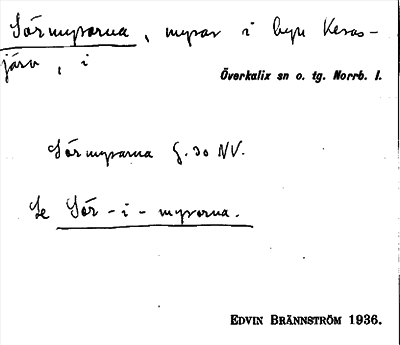 Sörmyrorna, myror i byn Keras-
järv, i
Överkalix sn o. tg. Norrb. l.
Sörmyrorna G.30 NV.
Se Sör-i-myrorna.
EDVIN BRÄNNSTRÖM 1936.